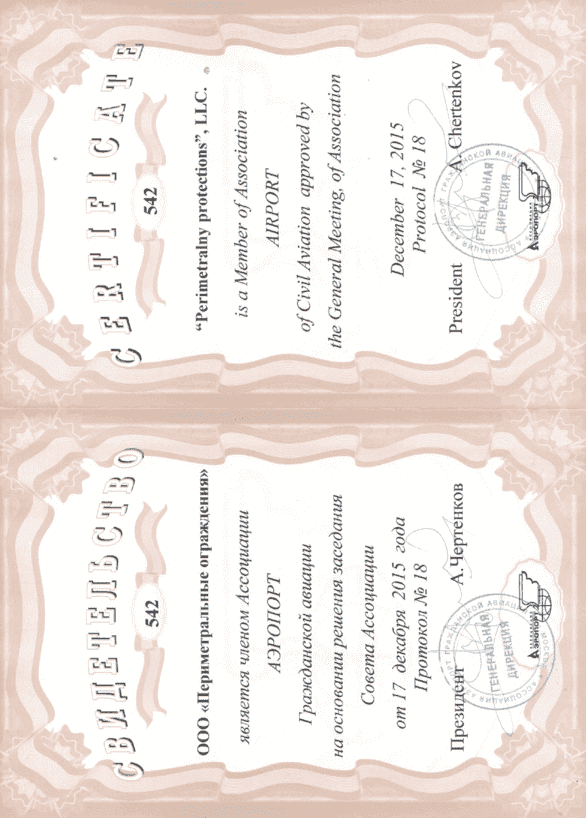 СВИДЕТЕЛЬСТВО
542
ООО «Периметральные ограждения»
является членом Ассоциации
АЭРОПОРТ
Гражданской авиации
на основании решения заседания
Совета Ассоциации
от 17 декабря 2015 года
Протокол № 18
Президент А.Чертенков
ГЕНЕРАЛЬНАЯ
ДИРЕКЦИЯ
АЭРОПОРТ
CERTIFICATE
542
“Perimetralny protections”, LLC.
is a Member of Association
AIRPORT
of Civil Aviation approved by
the General Meeting, of Association
December 17, 2015
Protocol № 18
President A. Chertenkov
ГЕНЕРАЛЬНАЯ
ДИРЕКЦИЯ
АЭРОПОРТ